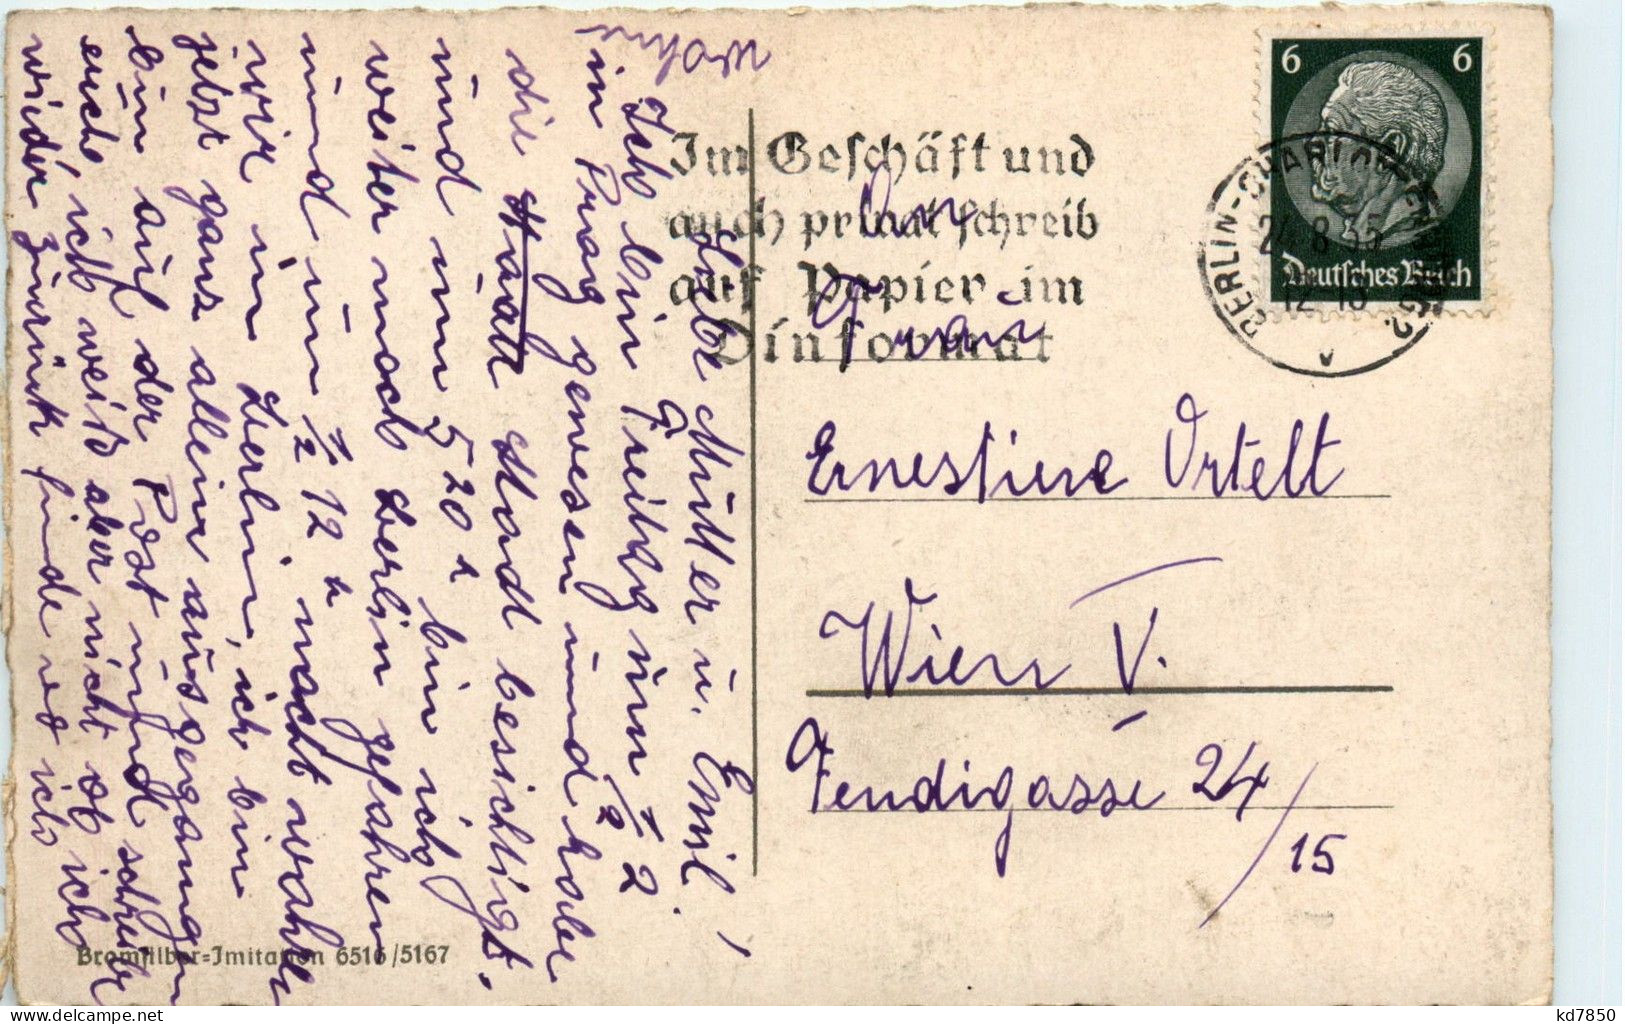 Liebe Mutter u. Emil!
Ich bin Freitag um ½ 2
in Prag gewesen und habe
die Stadt besichtigt.
und um 5 20 h bin ich
weiter nach Berlin gefahren
und um ½ 12 h nacht waren
wir in Berlin, ich bin
jetzt ganz allein ausgegangen
bin auf der Post und schreibe
euch, ich weiß aber nicht ob ich
wieder zurück finde wo ich
wohne
Im Geschäft und
auch privat schreib
auf Papier im
Dinformat
An
Frau
Ernestine Ortelt
Wien V.
Fendigasse 24/15
6 6
Deutsches Reich
BERLIN-CHARLOTTENBURG 2
24.8.35
12-13
Bromsilber-Imitation 6516/5167
www.delcampe.net
kd7850